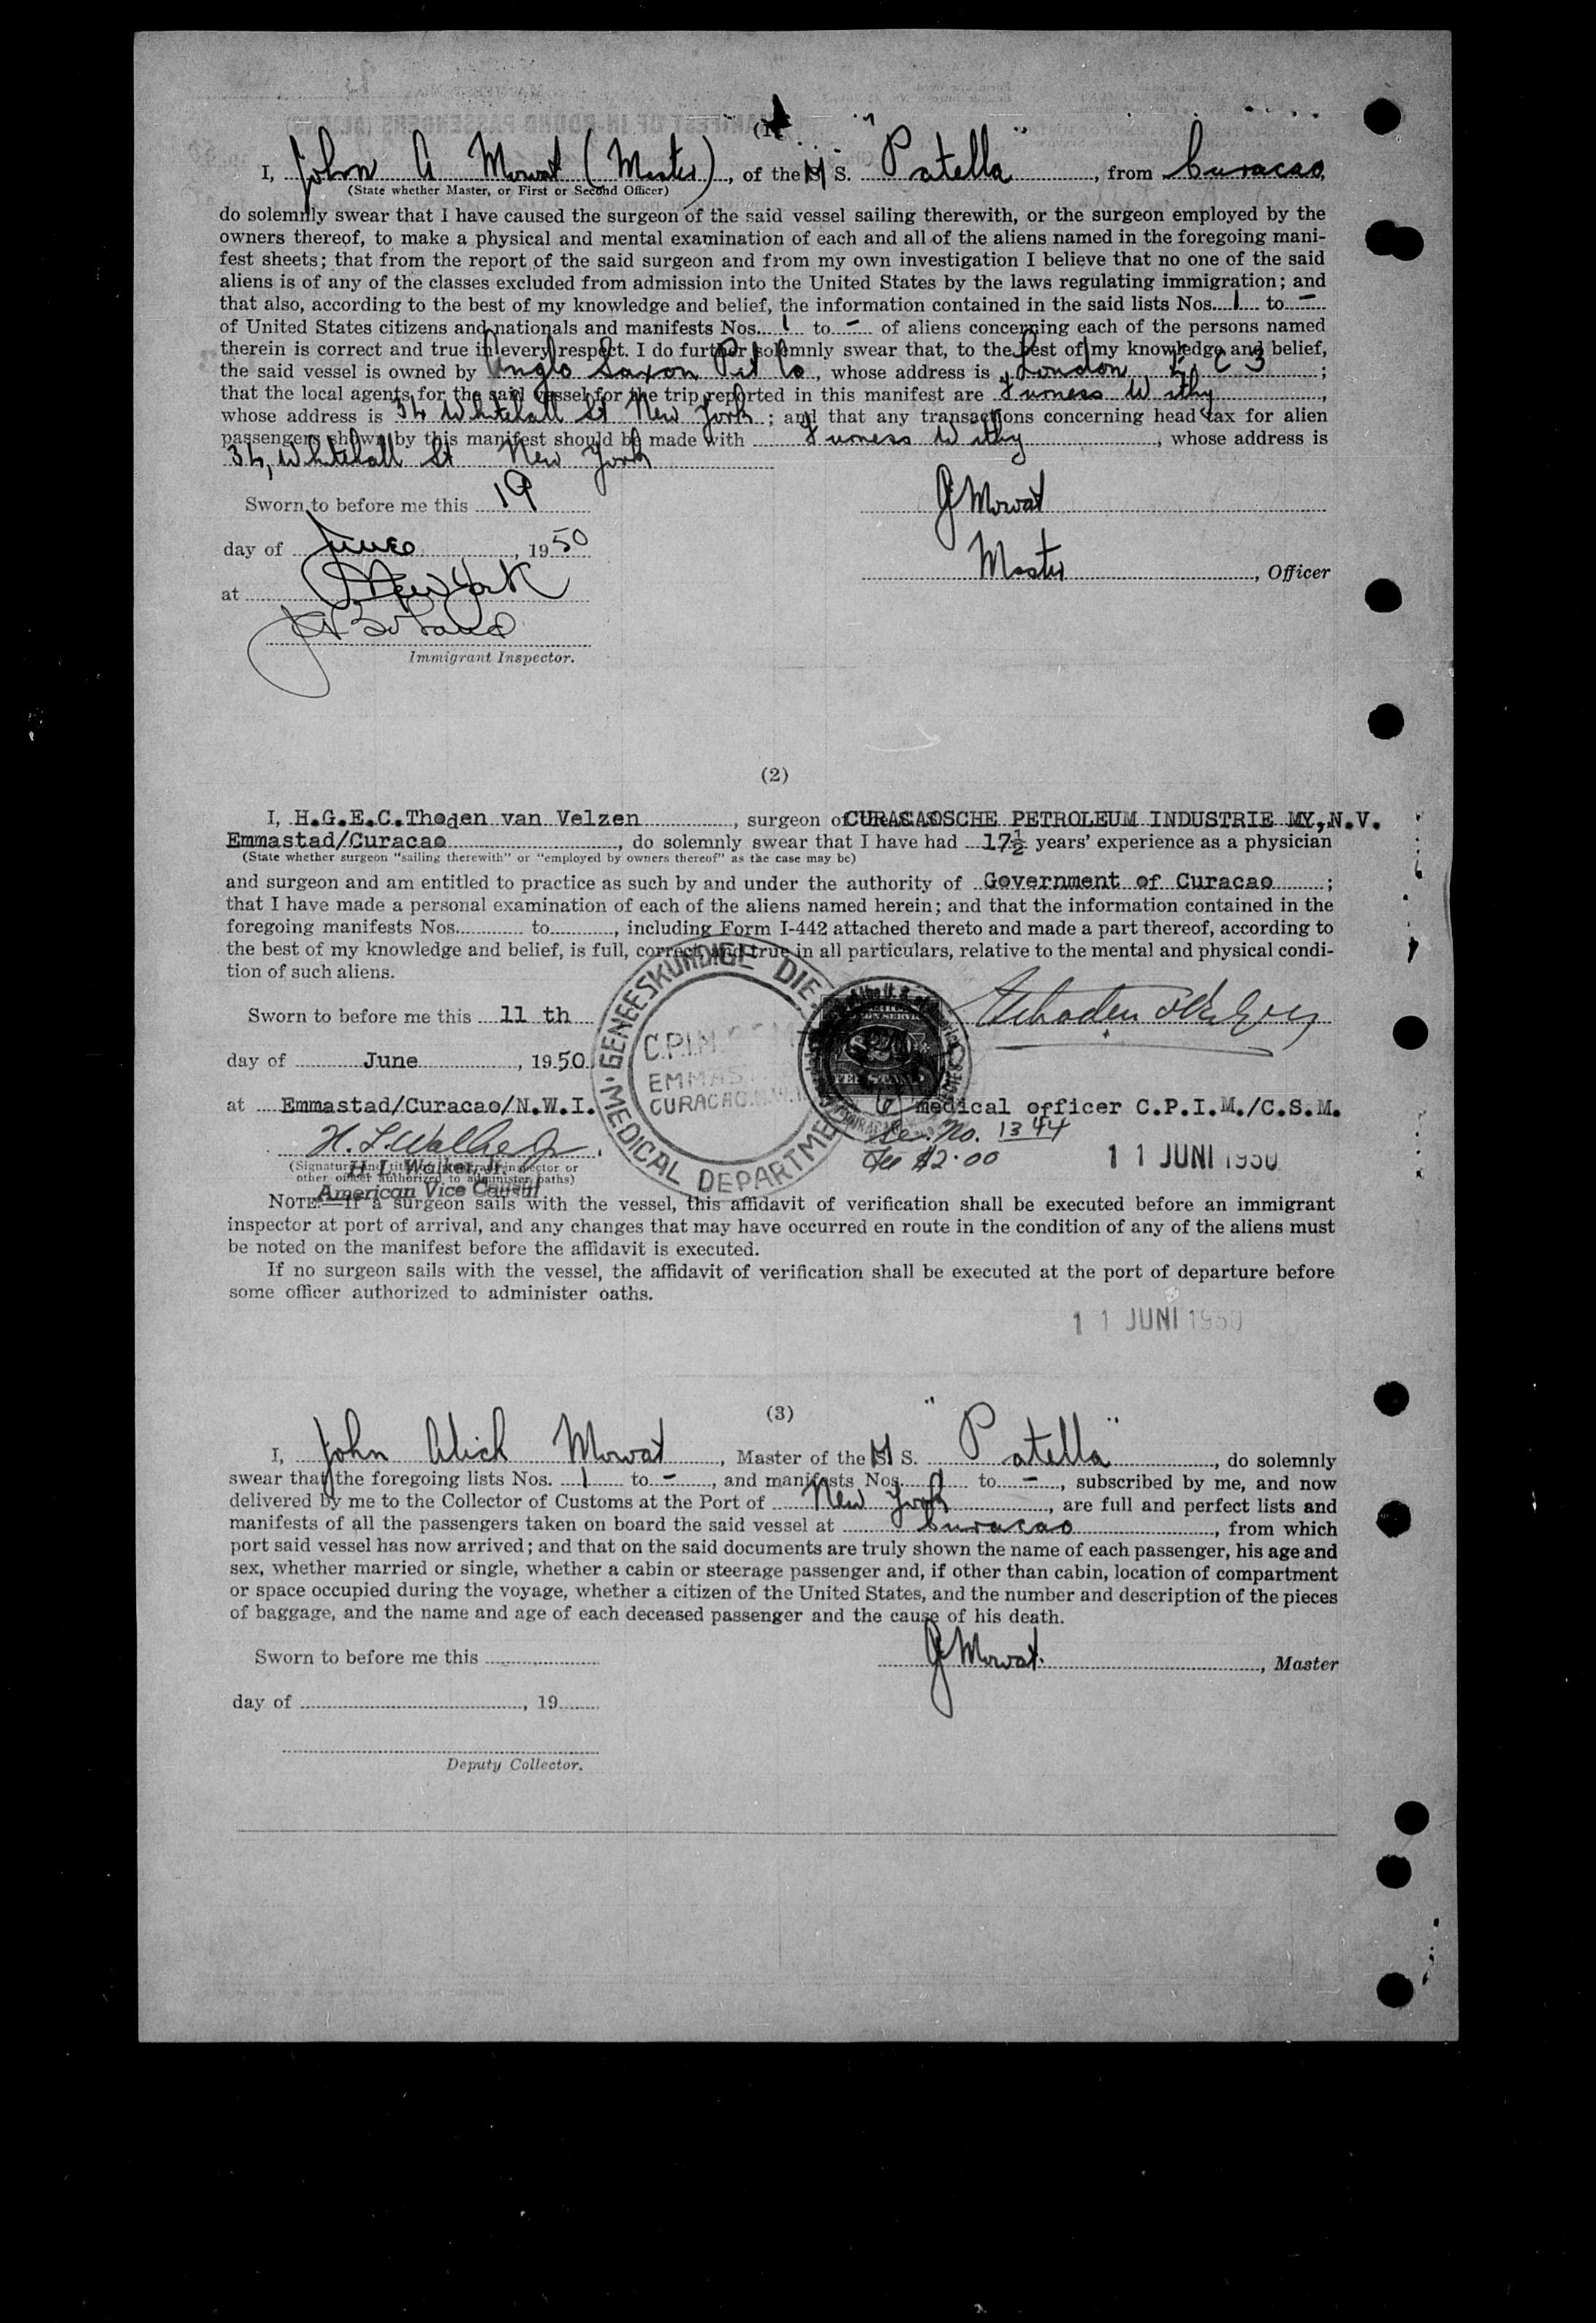 (1)
I, John A Mowat (Master), of the M S. "Patella", from Curacao,
(State whether Master, or First or Second Officer)
do solemnly swear that I have caused the surgeon of the said vessel sailing therewith, or the surgeon employed by the
owners thereof, to make a physical and mental examination of each and all of the aliens named in the foregoing mani-
fest sheets; that from the report of the said surgeon and from my own investigation I believe that no one of the said
aliens is of any of the classes excluded from admission into the United States by the laws regulating immigration; and
that also, according to the best of my knowledge and belief, the information contained in the said lists Nos. 1 to -
of United States citizens and nationals and manifests Nos. 1 to - of aliens concerning each of the persons named
therein is correct and true in every respect. I do further solemnly swear that, to the best of my knowledge and belief,
the said vessel is owned by Anglo Saxon Pet Co, whose address is London E C 3;
that the local agents for the said vessel for the trip reported in this manifest are Furness Withy,
whose address is 34 Whitehall St New York; and that any transactions concerning head tax for alien
passengers shown by this manifest should be made with Furness Withy, whose address is
34, Whitehall St New York
Sworn to before me this 19
J Mowat
day of June, 1950
Master, Officer
at New York
Immigrant Inspector.
(2)
I, H.G.E.C.Thoden van Velzen, surgeon of CURACAOSCHE PETROLEUM INDUSTRIE MY,N.V.
Emmastad/Curacao, do solemnly swear that I have had 17½ years' experience as a physician
(State whether surgeon "sailing therewith" or "employed by owners thereof" as the case may be)
and surgeon and am entitled to practice as such by and under the authority of Government of Curacao;
that I have made a personal examination of each of the aliens named herein; and that the information contained in the
foregoing manifests Nos. to, including Form I-442 attached thereto and made a part thereof, according to
the best of my knowledge and belief, is full, correct, and true in all particulars, relative to the mental and physical condi-
tion of such aliens.
GENEESKUNDIGE
MEDICAL DEPARTME
C.P.I.M.
EMMAST
CURACAO
Sworn to before me this 11 th
day of June, 1950
at Emmastad/Curacao/N.W.I.
medical officer C.P.I.M./C.S.M.
H. L. Walker Jr.
No. 1344
Fee $2.00
11 JUNI 1950
(Signature and title of immigrant inspector or
other officer authorized to administer oaths)
H. L. Walker, Jr.
American Vice Consul
NOTE.—If a surgeon sails with the vessel, this affidavit of verification shall be executed before an immigrant
inspector at port of arrival, and any changes that may have occurred en route in the condition of any of the aliens must
be noted on the manifest before the affidavit is executed.
If no surgeon sails with the vessel, the affidavit of verification shall be executed at the port of departure before
some officer authorized to administer oaths.
11 JUNI 1950
(3)
I, John Alick Mowat, Master of the M S. "Patella", do solemnly
swear that the foregoing lists Nos. 1 to -, and manifests Nos. to -, subscribed by me, and now
delivered by me to the Collector of Customs at the Port of New York, are full and perfect lists and
manifests of all the passengers taken on board the said vessel at Curacao, from which
port said vessel has now arrived; and that on the said documents are truly shown the name of each passenger, his age and
sex, whether married or single, whether a cabin or steerage passenger and, if other than cabin, location of compartment
or space occupied during the voyage, whether a citizen of the United States, and the number and description of the pieces
of baggage, and the name and age of each deceased passenger and the cause of his death.
Sworn to before me this
J Mowat., Master
day of, 19
Deputy Collector.